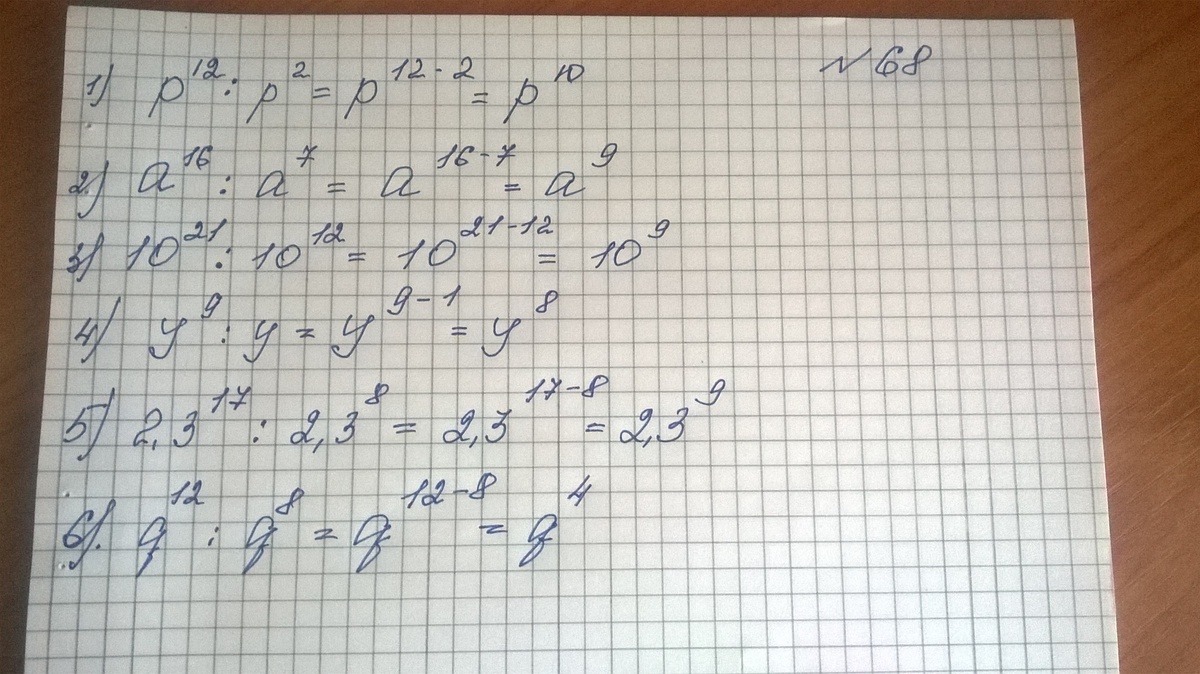 № 68
1) p¹² : p² = p¹²⁻² = p¹⁰
2) a¹⁶ : a⁷ = a¹⁶⁻⁷ = a⁹
3) 10²¹ : 10¹² = 10²¹⁻¹² = 10⁹
4) y⁹ : y = y⁹⁻¹ = y⁸
5) 2,3¹⁷ : 2,3⁸ = 2,3¹⁷⁻⁸ = 2,3⁹
6). q¹² : q⁸ = q¹²⁻⁸ = q⁴